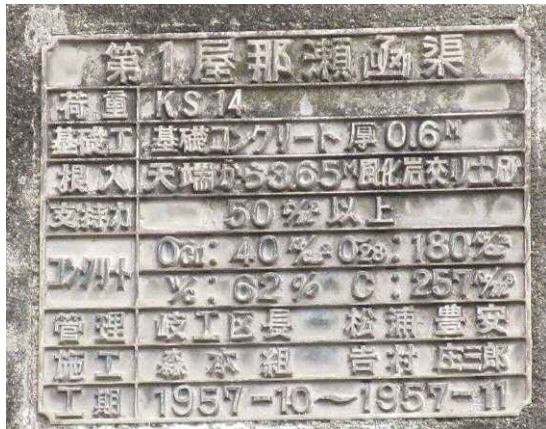 第1屋那瀬函渠
荷重 KS14
基礎工 基礎コンクリート厚0.6M
根入 天端から3.65M風化岩交り土砂
支持力 50 以上
コンクリート σ21:40 σ28:180
W/C:62% C:257
管理 岐工区長 松浦豊安
施工 森本組 吉村庄三郎
工期 1957-10~1957-11